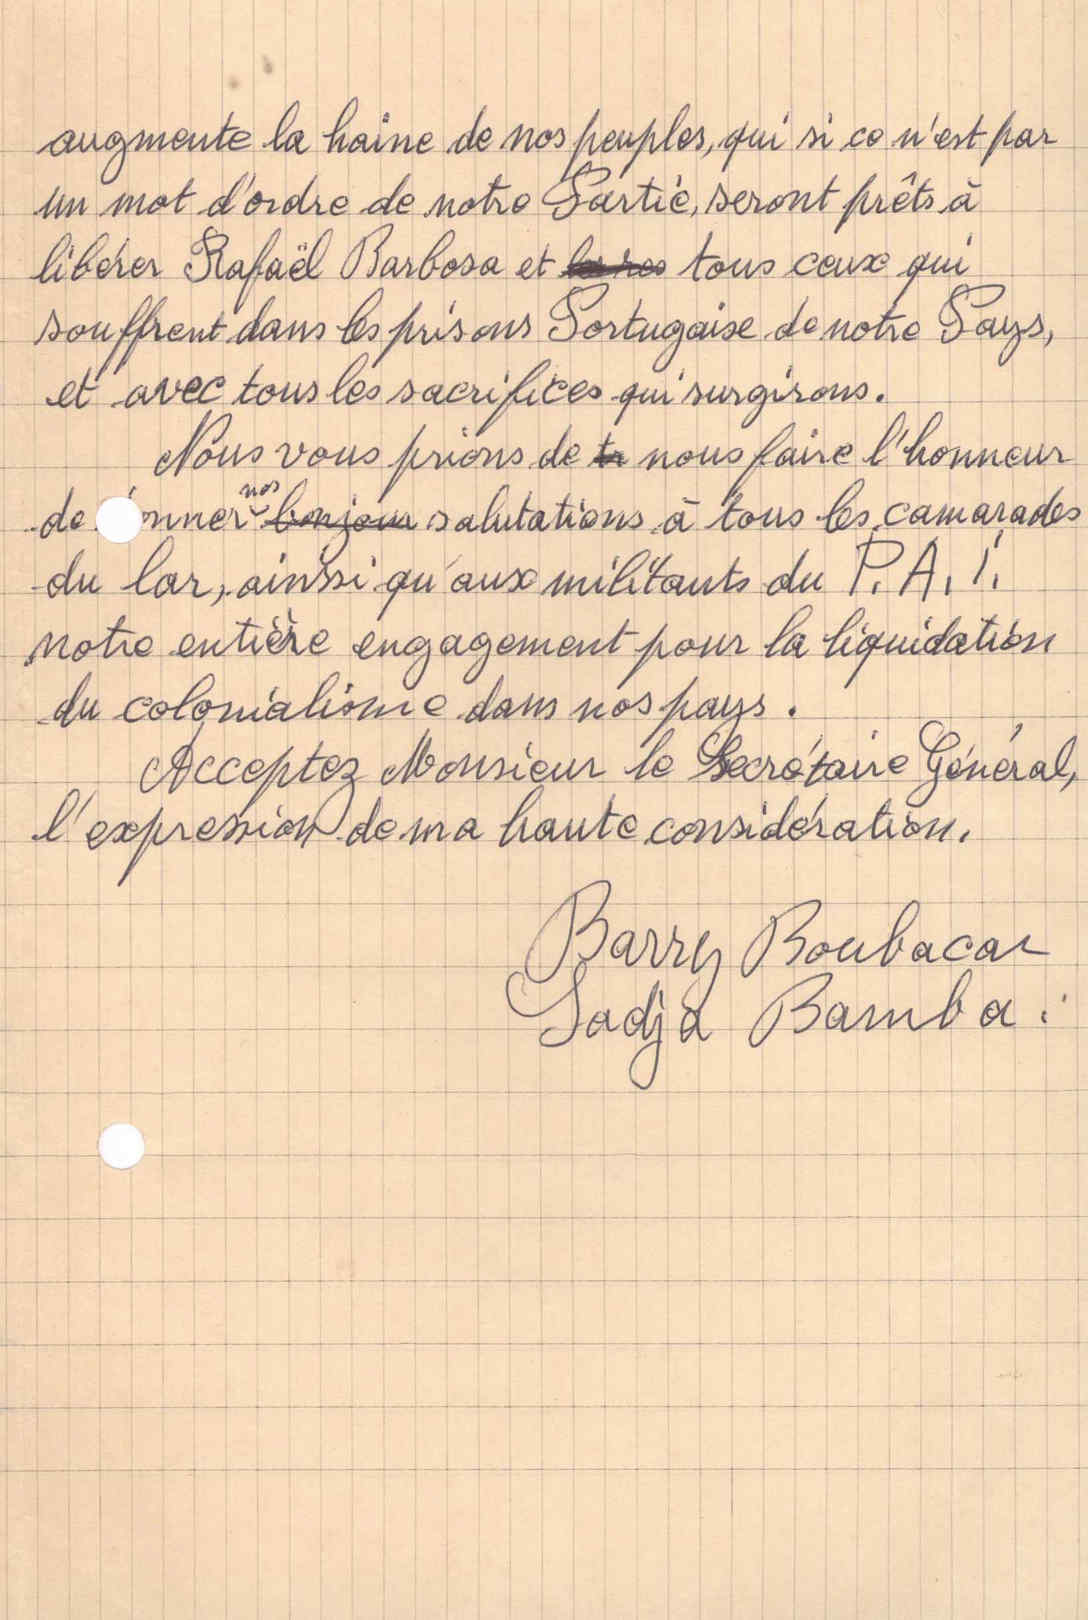 augmente la haine de nos peuples, qui si ce n'est par
un mot d'ordre de notre Partie, seront prêts à
libérer Rafaël Barbosa et tous ceux qui
souffrent dans les prisons Portugaise de notre Pays,
et avec tous les sacrifices qui surgirons.
Nous vous prions de nous faire l'honneur
de onner nos bonjour salutations à tous les camarades
du lar, ainssi qu'aux militants du P.A.I.
notre entière engagement pour la liquidation
du colonialisme dans nos pays.
Acceptez Monsieur le Secrétaire Général,
l'expression de ma haute considération.
Barry Boubacar
Sadja Bamba.